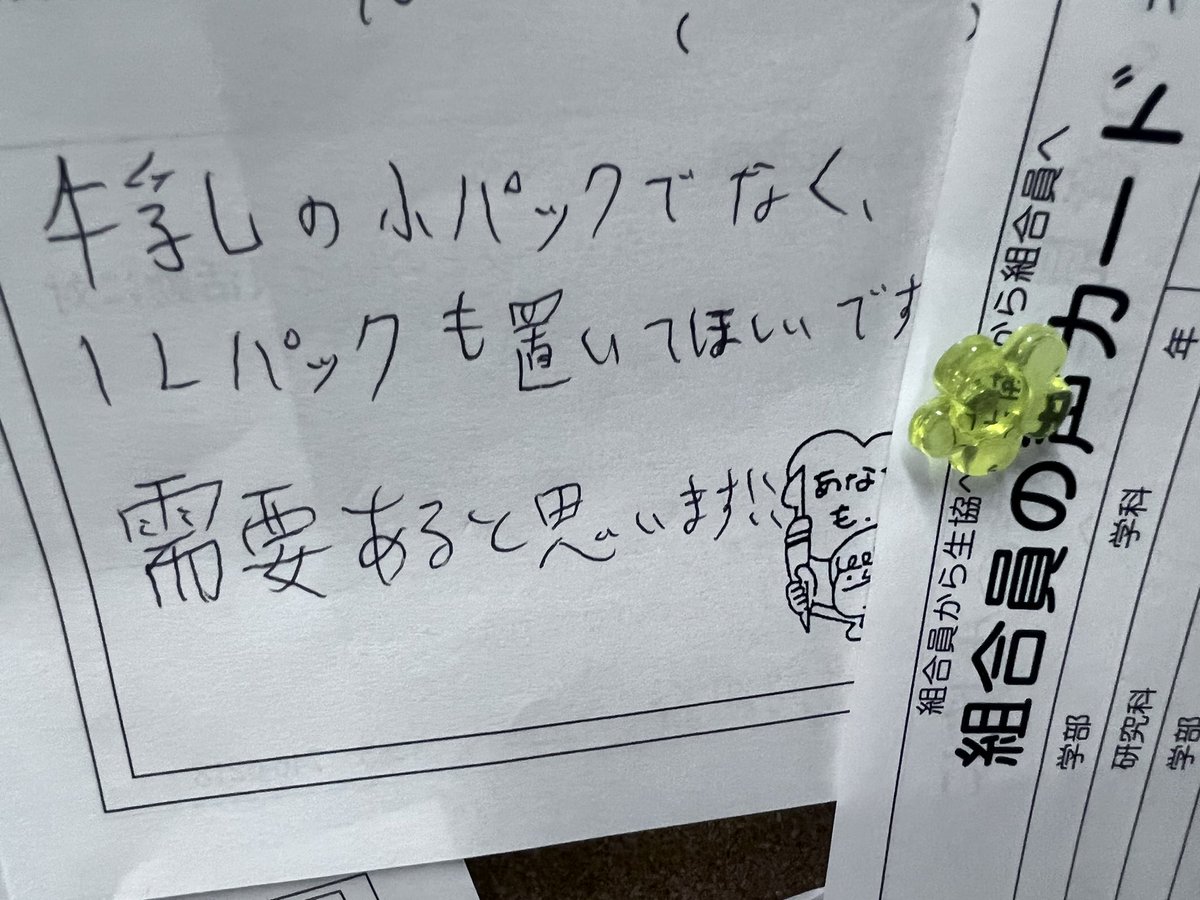 牛乳の小パックでなく、
1Lパックも置いてほしいです
需要あると思います!!
あな
も、
組合員から生協へ
から組合員へ
組合員の声カード
学部
学科
年
研究科
学部